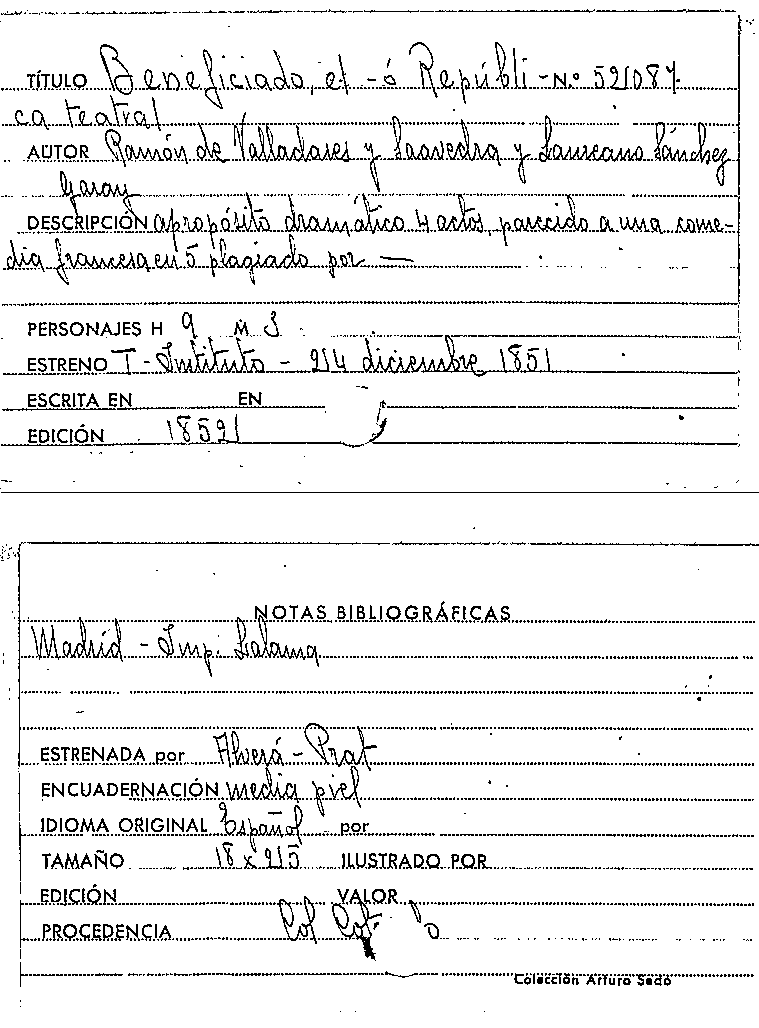 TÍTULO Beneficiado, el - ó Repúbli - N.º 52087
ca teatral
AUTOR Ramón de Valladares y Saavedra y Laureano Sánchez
Garay
DESCRIPCIÓN apropósito dramático 4 actos, parecido a una come-
dia francesa en 5 plagiado por —
PERSONAJES H 9 M 3
ESTRENO T - Instituto - 24 diciembre 1851
ESCRITA EN EN
EDICIÓN 1852
NOTAS BIBLIOGRÁFICAS
Madrid - Imp. Lalama
ESTRENADA por Alverá - Prat
ENCUADERNACIÓN media piel
IDIOMA ORIGINAL Español por
TAMAÑO 18 x 25 ILUSTRADO POR
EDICIÓN VALOR
PROCEDENCIA Col Cot.
Colección Arturo Sedó